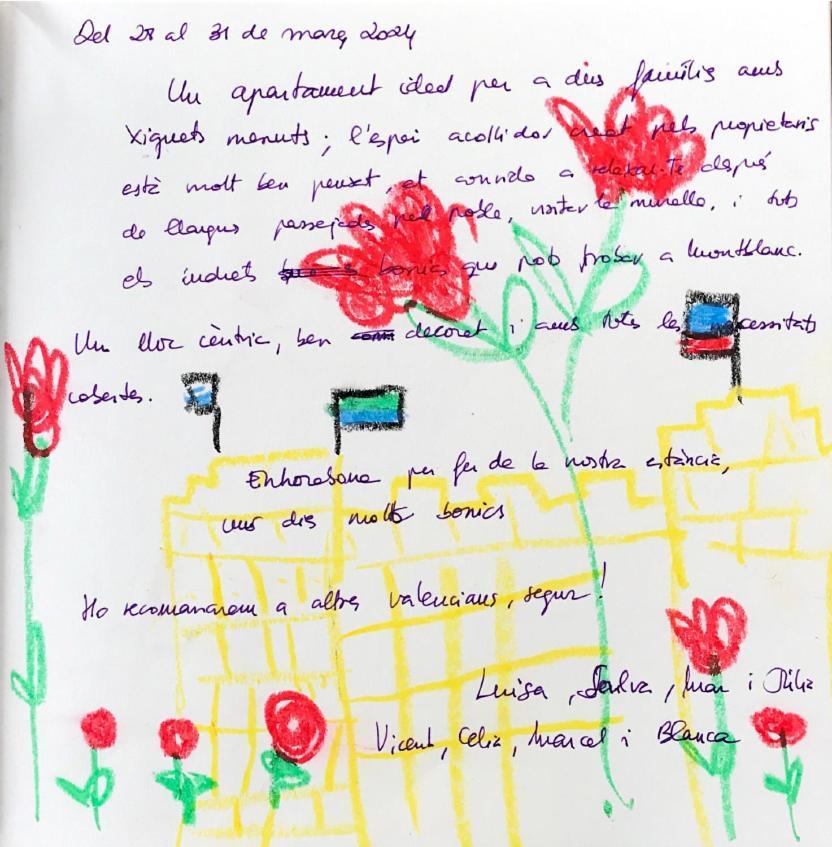 Del 28 al 31 de març 2024
Un apartament ideal per a dues famílis amb
xiquets menuts; l'espai acollidor creat pels propietaris
està molt ben pensat, et convida a relaxar-te després
de llargues passejades pel poble, visitar la muralla, i tots
els indrets bonics que pots trobar a Montblanc.
Un lloc cèntric, ben decorat i amb totes les necessitats
cobertes.
Enhorabona per fer de la nostra estància,
uns dies molts bonics
Ho recomanarem a altres valencians, segur!
Luisa, Salva, Mar i
Vicent, Celia, Marcel i Blanca